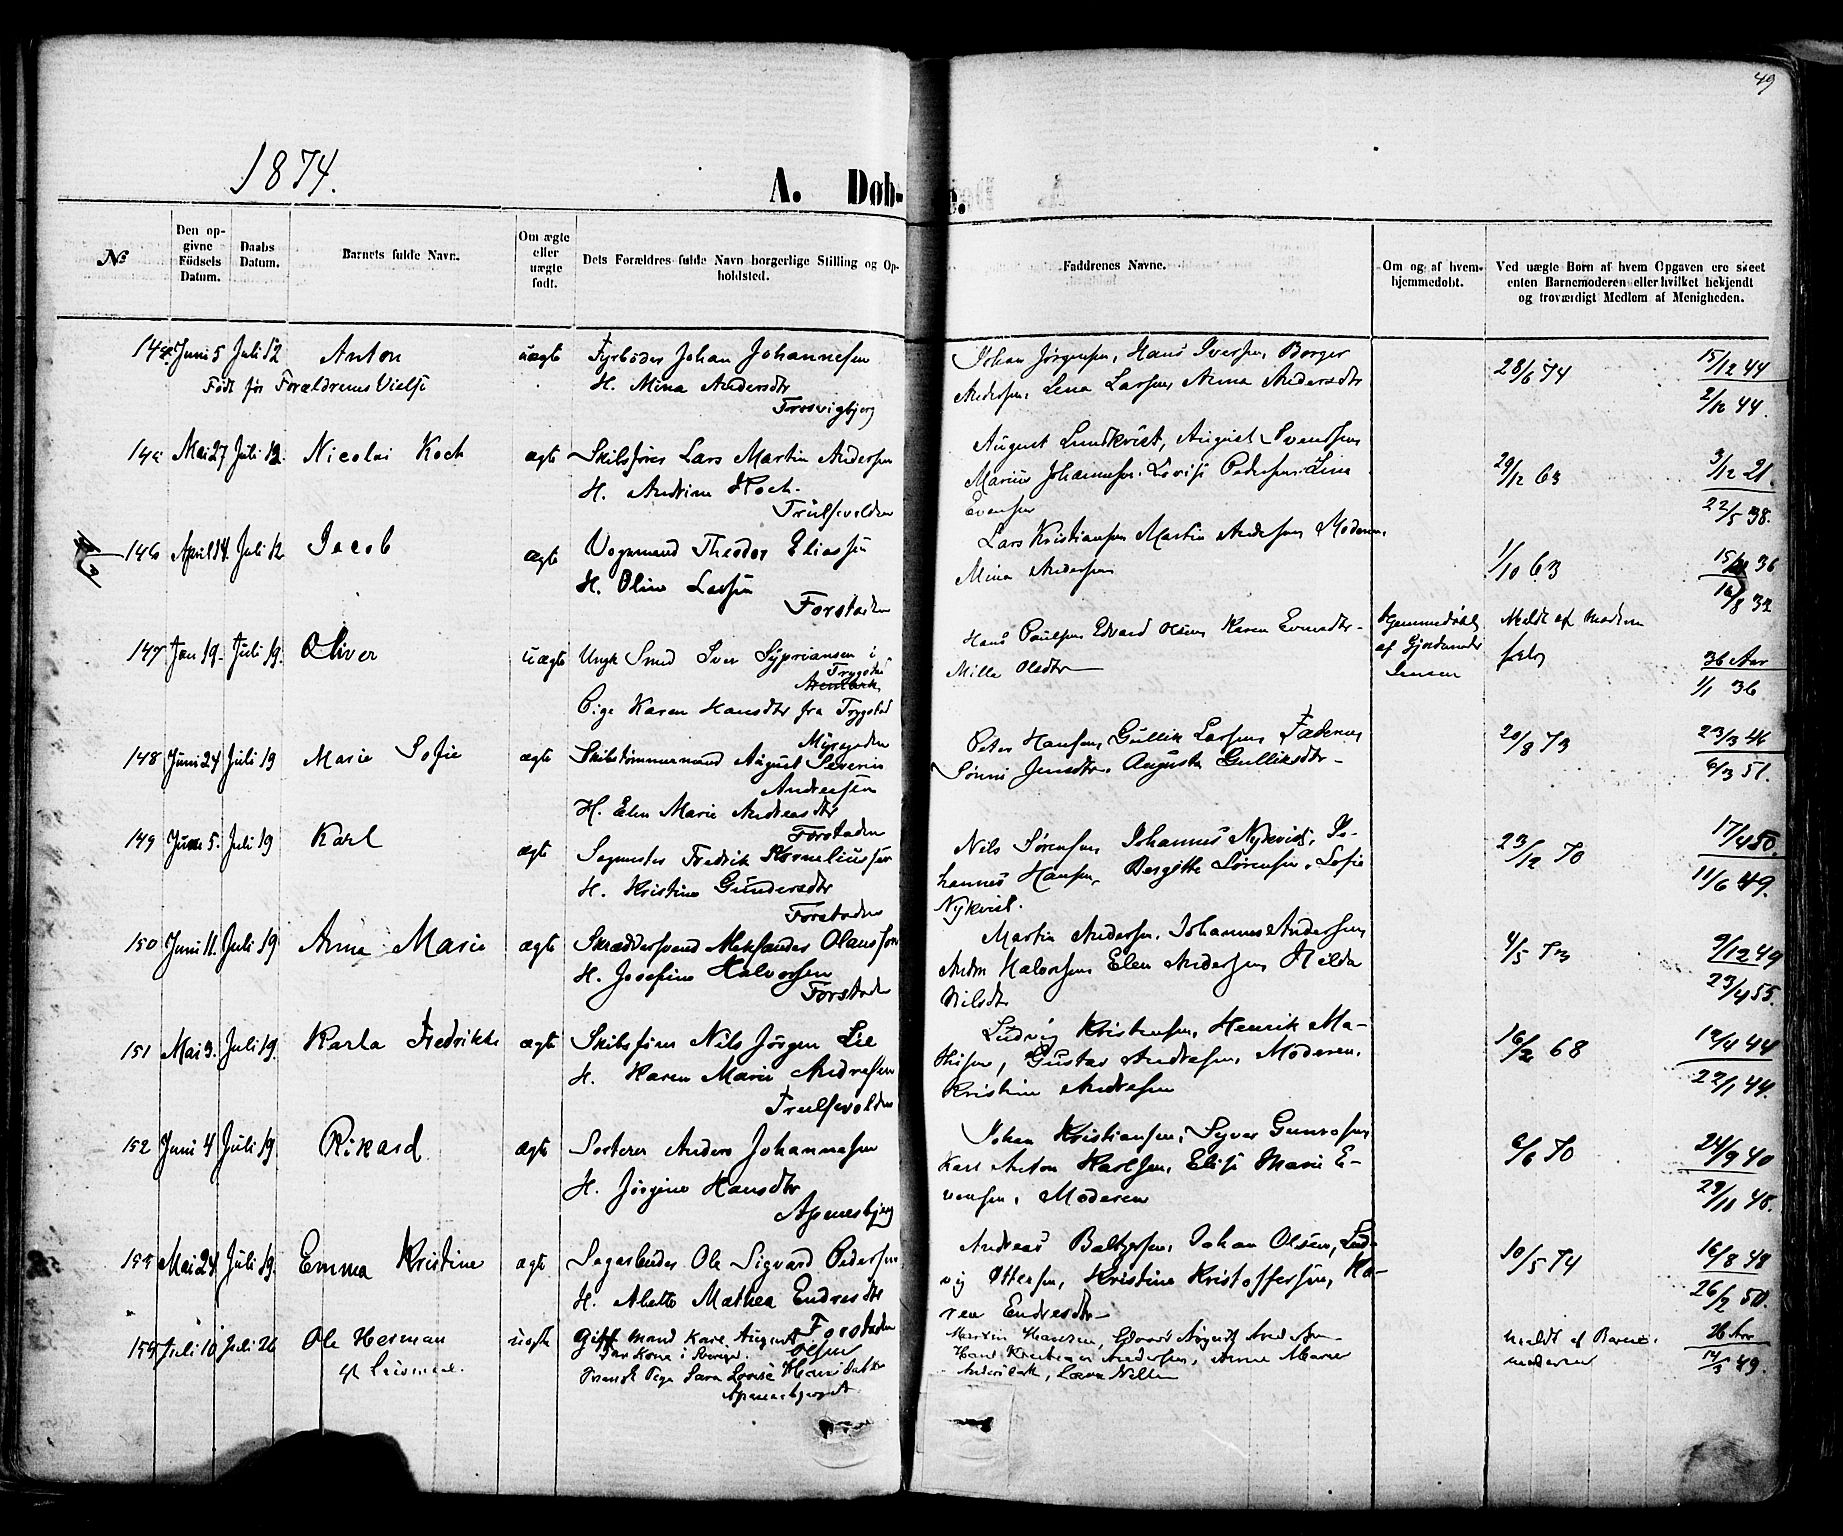 49
1874.
A. Døb-
e.
No
Den op-
givne
Födsels
Datum.
Daabs
Datum.
Barnets fulde Navn.
Om ægte
eller
uægte
født.
Dets Forældres fulde Navn borgerlige Stilling og Op-
holdsted.
Faddrenes Navne.
Om og af hvem
hjemmedøbt.
Ved uægte Børn af hvem Opgaven ere skeet
enten Barnemoderen eller hvilket bekjendt
og troværdigt Medlem af Menigheden.
144 Juni 5 Juli 12 Anton uægte Fyrbøder Johan Johannesen
Født før Forældrenes Vielse
H. Mina Andersdtr
Trosvigbjerg
Johan Jørgensen, Hans Iversen, Borger
Andersen, Lena Larsen Anna Andersdtr
28/6 74
15/12 44
2/12 44.
145 Mai 27 Juli 12. Nicolai Koch ægte Skibsfører Lars Martin Andersen
H. Andrine Koch.
August Lundkvist, August Svendsen
Marius Johannesen. Lovise Pedersen. Lina
Evensen
29/12 63
3/12 21.
22/5 38.
146 April 14. Juli 12 Jacob ægte Vognmand Theodor Eliassen
H. Oline Larsen
Forstaden
Lars Kristiansen Martin Andersen Moderen,
Mina Andersen
1/10 63
36
16/8 32
147 Jan 19. Juli 19. Oliver uægte Ungk Smed Iver Sypriansen i
Trygstad
Pige Karen Hansdtr fra Trygstad
Hans Paulsen Edvard Olsen Karen Evensdtr-
Mille Olsdtr
Hjemmedøbt
af Gjordemoder
Jensen
Meldt af Moderen
selv
36 Aar
1/1 36
148 Juni 24 Juli 19 Marie Sofie ægte Skibstømmermand August Severin
Andresen
H. Elen Marie Andreasdtr
Forstaden
Peter Hansen, Gullik Larsen, Faderen
Jensdtr. Augusta Gulliksdtr-
20/8 73
23/3 46
6/3 51.
149 Juni 5. Juli 19 Karl ægte Sagmester Fredrik Korneliussen
H. Kristine Gundersdtr
Forstaden
Nils Sørensen, Johannes Nykvist, Jo-
hannes Hansen, Bergitte Sørensen, Sofie
Nykvist.
23/12 70
17/4 50.
11/6 49.
150 Juni 11. Juli 19 Anna Marie ægte Skræddersvend Aleksander Olaussen
H. Josefine Halvorsen
Forstaden
Martin Andersen. Johannes Andersen
Andrea Halvorsen Elen Andersen Hilda
Nilsdtr
4/5 73
9/12 49
23/4 55.
151 Mai 3. Juli 19. Karla Fredrikke ægte Skibsfører Nils Jørgen Lie
H. Karen Marie Andresen
Ludvig Kristensen, Henrik Ma-
thisen, Gustav Andresen, Moderen,
Kristine Andresen
16/2 68
12/4 44
22/1 44.
152 Juni 4 Juli 19 Rikard ægte Sorterer Anders Johannesen
H. Jørgine Hansdtr
Apenesbjerg
Johan Kristiansen, Syver Gunrosen
Karl Anton Karlsen, Elise Marie E-
vensen, Moderen
6/6 70
24/9 40
45.
Mai 24 Juli 19. Emma Kristine ægte Sagarbeider Ole Sigvard Pedersen
H. Mathea Endresdtr
Forstaden
Andreas Baltzersen, Johan Olsen, Lud-
vig Ottersen, Kristine Kristoffersen, Ka-
ren Endresdtr
10/5 74
16/8 48
26/2 50.
Juli 10 Juli 26 Ole Herman uægte Gift Mand Karl August
Olsen
Kone i Sverige.
Pige Sara Lovise Hansdatter
Apenesbjerget
Martin Hansen, August Andersen
Hans Kristian Andersen, Anna Marie
Andersdatr, Nelsen
meldt af Barne-
moderen
26 Aar
49.